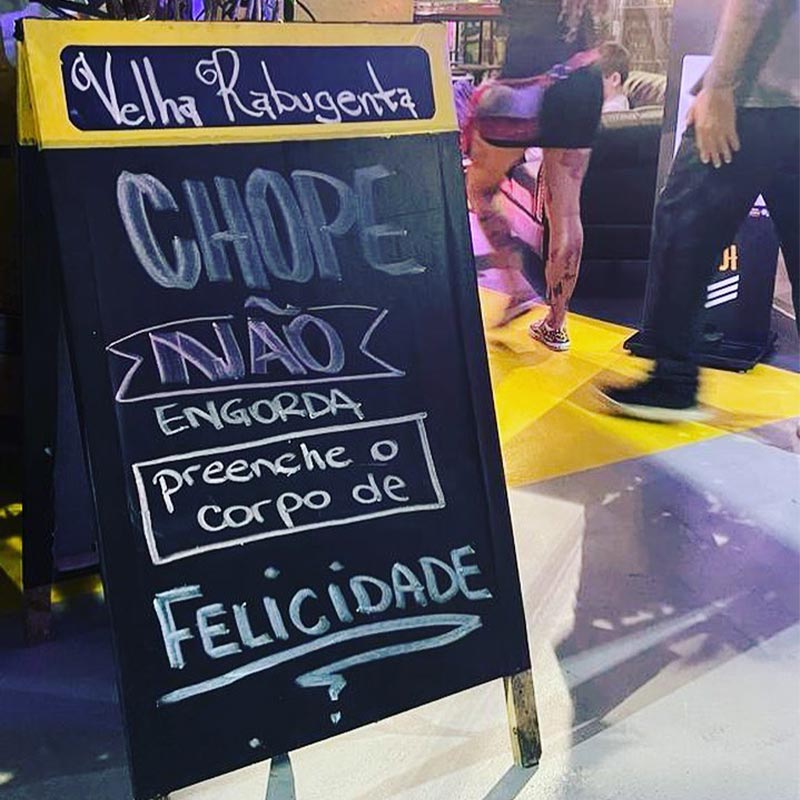 Velha Rabugenta
CHOPE
NÃO
ENGORDA
preenche o
corpo de
FELICIDADE